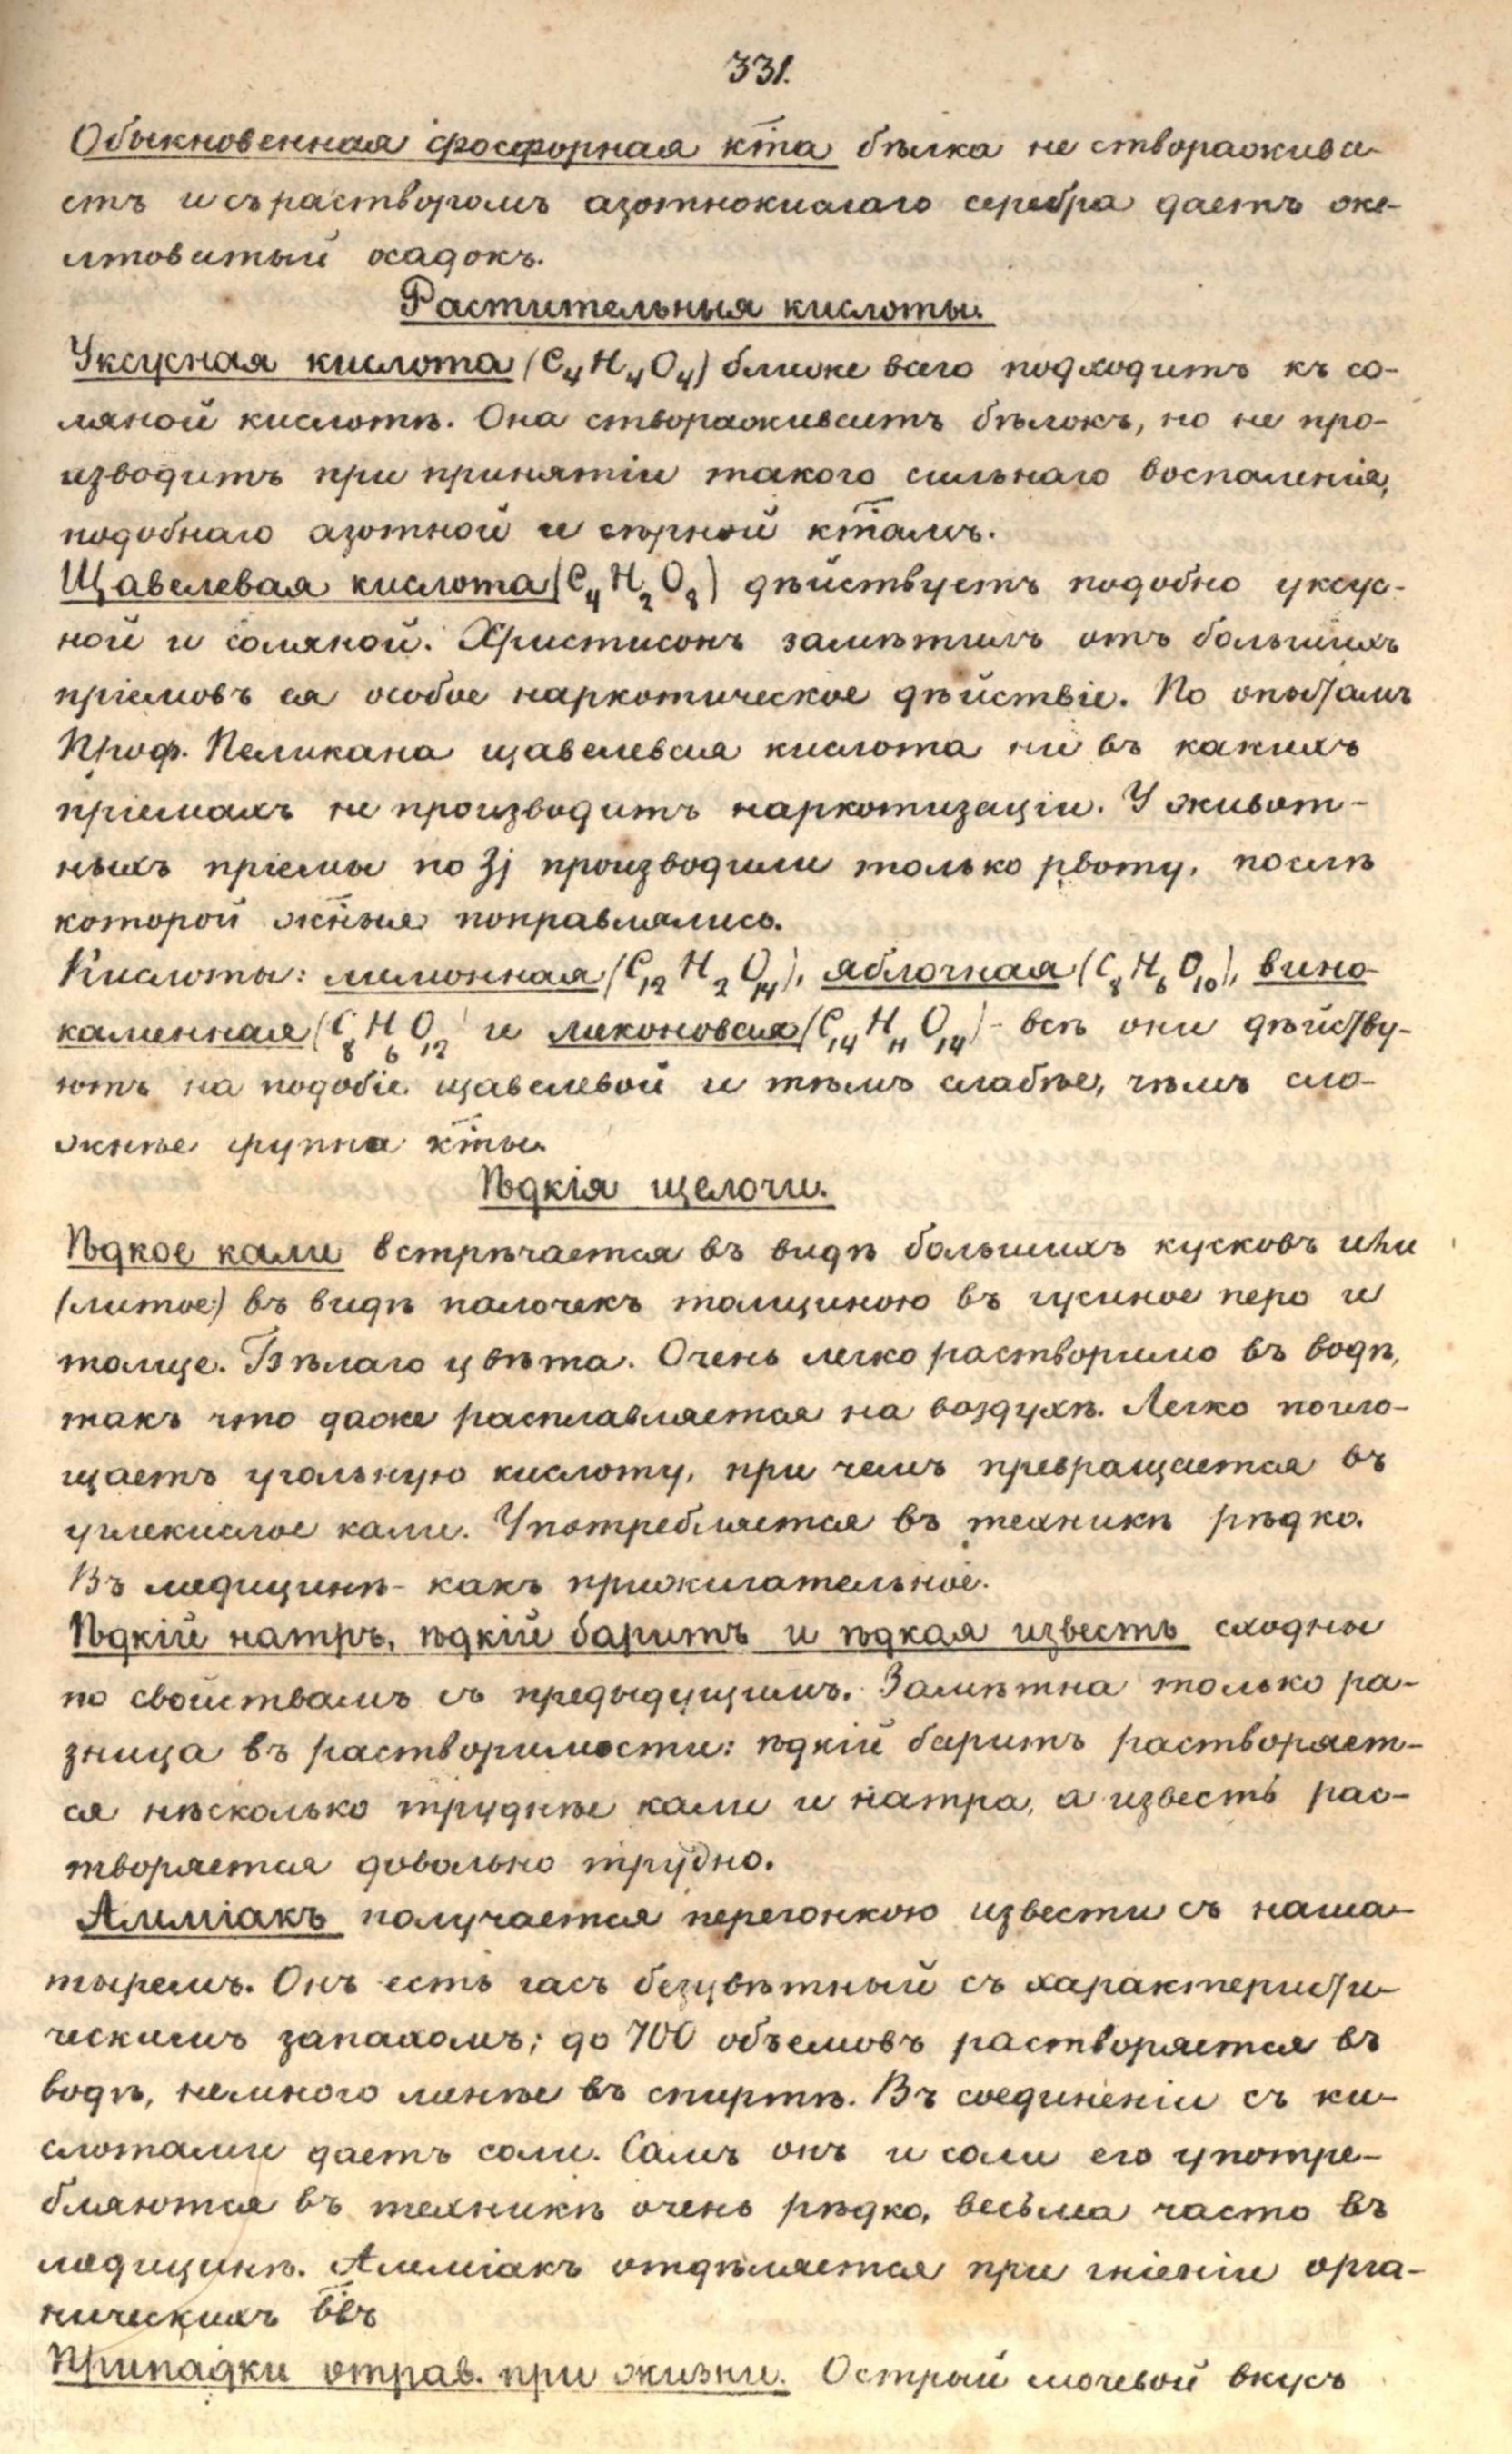 331.
Обыкновенная фосфорная кта бѣлка не створажива-
етъ и съ растворомъ азотнокислаго серебра даетъ же-
лтоватый осадокъ.
Растительныя кислоты.
Уксусная кислота (C₄H₄O₄) ближе всего подходитъ къ со-
ляной кислотѣ. Она створаживаетъ бѣлокъ, но не про-
изводитъ при принятіи такого сильнаго воспаленія,
подобнаго азотной и сѣрной ктамъ.
Щавелевая кислота (C₄H₂O₈) дѣйствуетъ подобно уксус-
ной и соляной. Христисонъ замѣтилъ отъ большихъ
пріемовъ ея особое наркотическое дѣйствіе. По опытамъ
Проф. Пеликана щавелевая кислота ни въ какихъ
пріемахъ не производитъ наркотизаціи. У живот-
ныхъ пріемы по ʒj производили только рвоту, послѣ
которой жныя поправлялись.
Кислоты: лимонная (C₁₂H₂O₁₄), яблочная (C₈H₆O₁₀), вино-
каменная (C₈H₆O₁₂) и меконовая (C₁₄H₁₁O₁₄) - всѣ они дѣйству-
ютъ на подобіе щавелевой и тѣмъ слабѣе, чѣмъ сло-
жнѣе группа кты.
Ѣдкія щелочи.
Ѣдкое кали встрѣчается въ видѣ большихъ кусковъ или
(литое) въ видѣ палочекъ толщиною въ гусиное перо и
толще. Бѣлаго цвѣта. Очень легко растворимо въ водѣ,
такъ что даже расплавляется на воздухѣ. Легко погло-
щаетъ угольную кислоту, при чемъ превращается въ
углекислое кали. Употребляется въ техникѣ рѣдко.
Въ медицинѣ - какъ прижигательное.
Ѣдкій натръ, ѣдкій баритъ и ѣдкая известь сходны
по свойствамъ съ предыдущимъ. Замѣтна только ра-
зница въ растворимости: ѣдкій баритъ растворяет-
ся нѣсколько труднѣе кали и натра, а известь рас-
творяется довольно трудно.
Амміакъ получается перегонкою извести съ наша-
тыремъ. Онъ есть гасъ безцвѣтный съ характеристи-
ческимъ запахомъ; до 700 объемовъ растворяется въ
водѣ, немного менѣе въ спиртѣ. Въ соединеніи съ ки-
слотами даетъ соли. Самъ онъ и соли его употре-
бляются въ техникѣ очень рѣдко, весьма часто въ
медицинѣ. Амміакъ отдѣляется при гніеніи орга-
ническихъ ввъ
Припадки отрав. при жизни. Острый мочевой вкусъ